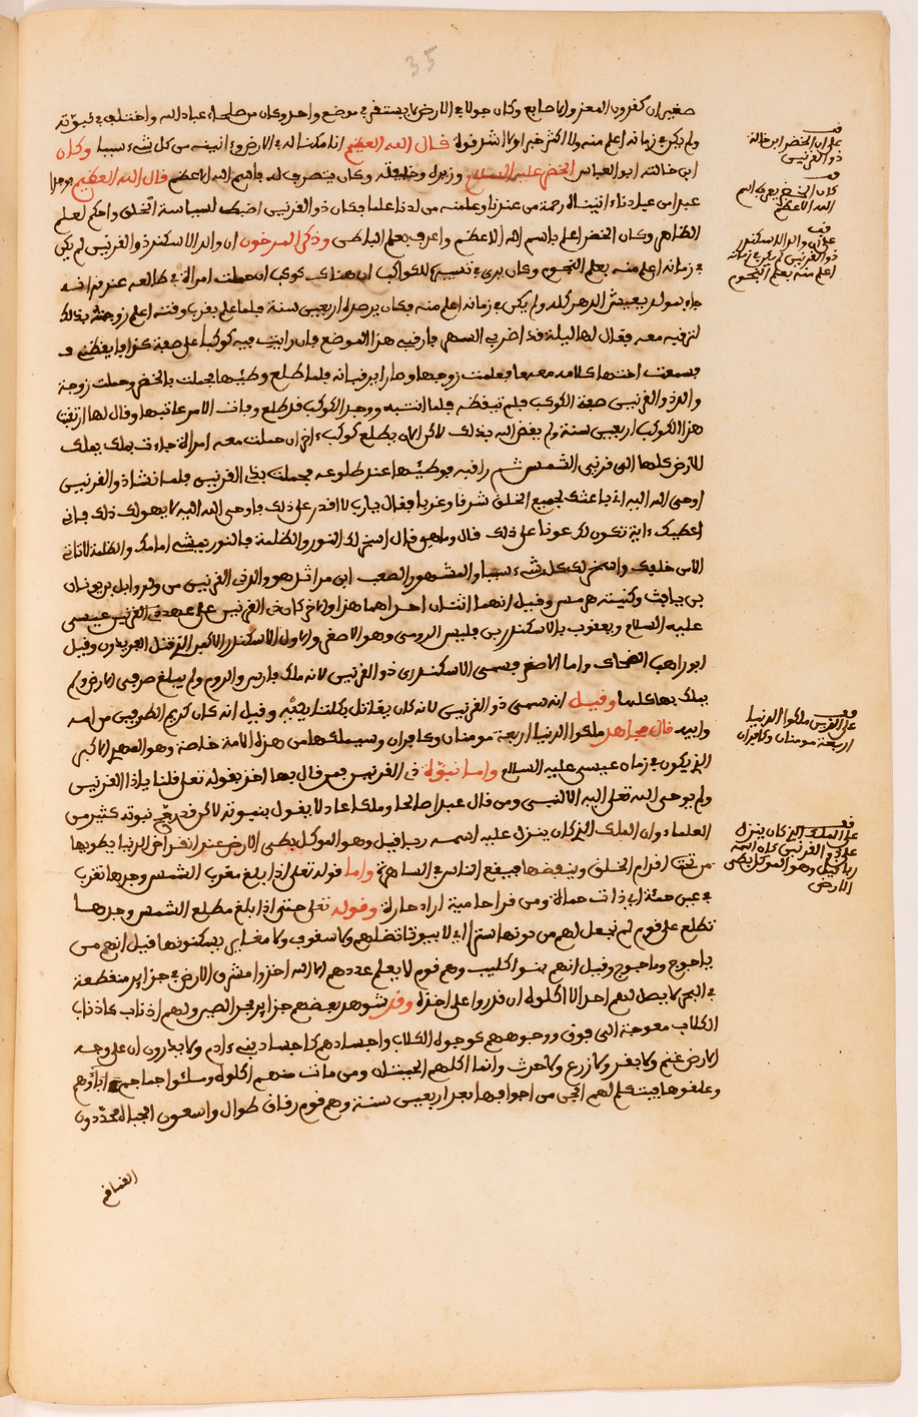 35
صغيران كقرون المعز والاصابع وكان جولا في الارض لا يستقر في موضع واحد وكان من صلحاء عباد الله واختلف في نبوته
ولم يكن في زمانه اعلم منه ولا اكثر خبرا ولا اشرف قوله قال الله العظيم انا مكنا له في الارض واتينه من كل شيء سببا وكان
ابن خالته ابو العباس الخضر عليه السلام وزيره وخليفته وكان يتصرف له باسم الله الاعظم قال الله العظيم فوجدا
عبدا من عبادنا ءاتيناه رحمة من عندنا وعلمنه من لدنا علما فكان ذو القرنين اضبط لسياسة الخلق واحكم لعلم
الظاهر وكان الخضر اعلم باسم الله الاعظم واعرف بعلم الباطن وذكر المورخون ان والد الاسكندر ذو القرنين لم يكن
في زمانه اعلم منه بعلم النجوم وكان يرى في تسييره للكواكب ان هناك كوكب ان حملت امراة في طالعه عند قرانه
جاء بمولد يعيش الدهر كله ولم يكن في زمانه اعلم منه فكان يرصده اربعين سنة فلما علم بقرب وقته اعلم زوجته بذلك
لترقبه معه فقال لها ليلة قد اضر بي السهر فارقبي هذا الموضع فان رايت فيه كوكبا على صفة كذا فايقظيني
فسمعت اختها كلامه معها فعلمت زوجها وصارا يرقبانه فلما طلع وطيها فحملت بالخضر وحملت زوجة
والد ذو القرنين صفة الكوكب فلم تيقظه فلما انتبه ووجد الكوكب قد طلع وفات الامر عاتبها وقال لها ارتقبت
هذا الكوكب اربعين سنة ولم يقض الله بذلك لاكن الان يطلع كوكب ءاخر ان حملت معه امراة جاءت بملك يملك
الارض كلها الى قرني الشمس ثم راقبه فوطئها عند طلوعه فحملت بذي القرنين فلما نشا ذو القرنين
اوحى الله اليه اني باعثك لجميع الخلق شرقا وغربا فقال يا رب لا اقدر على ذلك فاوحى الله اليه لا يهولك ذلك فاني
اعطيك ءاية تكون لك عونا على ذلك قال وما هي قال اسخر لك النور والظلمة فالنور يمشي امامك والظلمة لاتاتي
الا من خلفك واسخر لك كل شيء سببا والمشهور الصعب ابن مراثد هو والذي القرنين من ولد وابل بن يونان
بن يافث وكنيته هرمس وقيل انهما اثنان احداهما هذا والاخر كان ذي القرنين على عهد في القرنين عيسى
عليه السلام ويعقوب بالاسكندر بن فليبس الرومي وهو الاصغر والاول الاسكندر الاكبر الذي قتل افريدون وقيل
ابوراهب الضحاك واما الاصغر فسمي الاسكندر ذو القرنين لانه ملك فارس والروم ولم يبلغ طرفي الارض ولم
يملك بها كلها وقيل انه سمي ذو القرنين لانه كان يقاتل بكلتا يديه وقيل انه كان كريم الطرفين من امه
وابيه قال مجاهد ملكوا الدنيا اربعة مومنان وكافران وسيملكها من هذه الامة خامسة وهو المهدي الاكبر
الذي يكون في زمان عيسى عليه السلام واما نبوة ذي القرنين فمن قال بها اخذ بقوله تعلى قلنا يا ذا القرنين
ولم يوحى الله تعلى اليه الا لنبي ومن قال عبدا صالحا وملكا عادلا يقول بنبوته لاكن قد رجح نبوته كثير من
العلماء وان الملك الذي كان ينزل عليه اسمه ربافيل وهو الموكل بطي الارض عند انقراض الدنيا يطويها
من تحت اقدام الخلق وينقضها فيقع الناس في الساهرة واما قوله تعلى اذا بلغ مغرب الشمس وجدها تغرب
في عين حمئة اي ذات حماة ومن قرا حامية اراد حارة وقوله تعلى حتى اذا بلغ مطلع الشمس وجدها
تطلع على قوم لم نجعل لهم من دونها سترا اي لا بيوتا تضلهم ولا سقوف ولا مغاير يسكنونها قيل انهم من
ياجوج وماجوج وقيل انهم بنو اكليب وهم قوم لا يعلم عددهم الا الله اخذوا مشرق الارض في جزاير منقطعة
في البحر لا يصل لهم احد الا اكلوه ان قدروا على اخذه وقد شوهد بعضهم جزاير بحر الصين ولهم اذناب كاذناب
الكلاب معوجة الى فوق ووجوههم كوجوه الكلاب واجسادهم كاجساد بني ءادم ولا يذرون ان على وجه
الارض غنم ولا بقر ولا زرع ولا حرث وانما اكلهم الحيتان ومن مات منهم اكلوه وسلئوا جماجم اباؤهم
وعلقوها فيتكلم لهم الجن من اجوافها بعد اربعين سنة وهم قوم رقاق طوال واسعون الجبا لمحددون
القنافر
قف
على ان الخضر ابن خالة
ذو القرنين
قف
كان الخضر يعرف اسم
الله الاعظم
قف
على ان والد الاسكندر
ذو القرنين لم يكن في زمانه
اعلم منه بعلم النجوم
قف
على الذين ملكوا الدنيا
اربعة مومنان وكافران
قف
على الملك الذي كان ينزل
على ذي القرنين كان اسمه
ربافيل وهو الموكل بطي
الارض